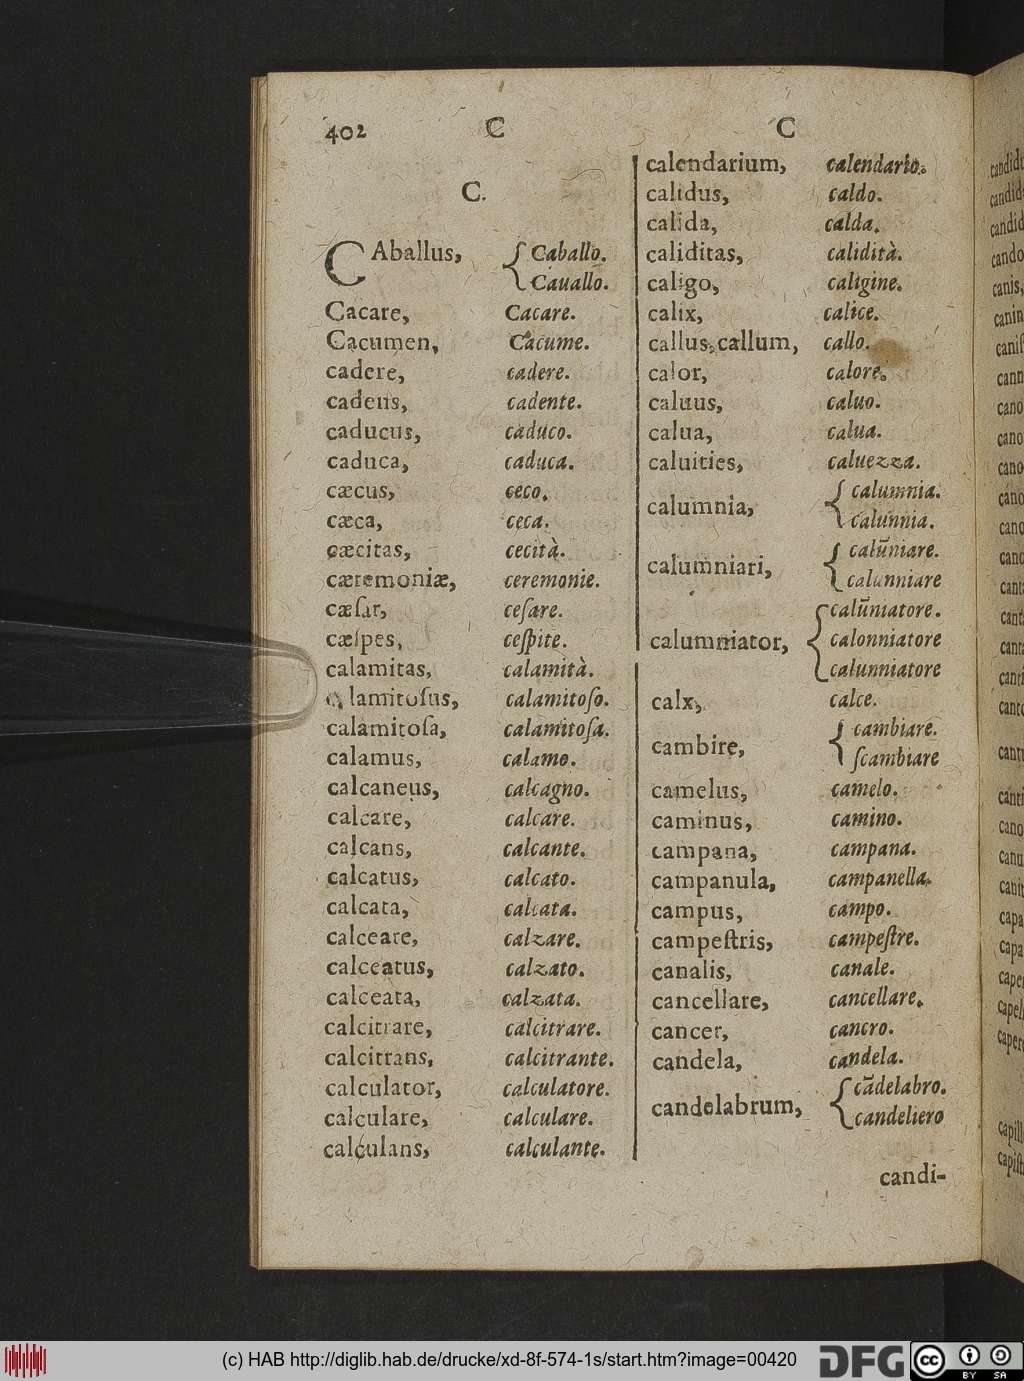 402 C C
C.
CAballus, { Caballo.
Cauallo.
Cacare, Cacare.
Cacumen, Cacume.
cadere, cadere.
cadens, cadente.
caducus, caduco.
caduca, caduca.
cæcus, ceco.
cæca, ceca.
cæcitas, cecità.
cæremoniæ, ceremonie.
cæſar, ceſare.
cæſpes, ceſpite.
calamitas, calamità.
calamitoſus, calamitoſo.
calamitoſa, calamitoſa.
calamus, calamo.
calcaneus, calcagno.
calcare, calcare.
calcans, calcante.
calcatus, calcato.
calcata, calcata.
calceare, calzare.
calceatus, calzato.
calceata, calzata.
calcitrare, calcitrare.
calcitrans, calcitrante.
calculator, calculatore.
calculare, calculare.
calculans, calculante.
calendarium, calendario.
calidus, caldo.
calida, calda.
caliditas, calidità.
caligo, caligine.
calix, calice.
callus, callum, callo.
calor, calore.
caluus, caluo.
calua, calua.
caluities, caluezza.
calumnia, { calumnia.
calunnia.
calumniari, { calūniare.
calunniare
calumniator, { calūniatore.
calonniatore
calunniatore
calx, calce.
cambire, { cambiare.
ſcambiare
camelus, camelo.
caminus, camino.
campana, campana.
campanula, campanella.
campus, campo.
campeſtris, campeſtre.
canalis, canale.
cancellare, cancellare.
cancer, cancro.
candela, candela.
candelabrum, { cādelabro.
candeliero
candi-
candid
candid
candid
cando
canis,
canin
caniſ
cann
cano
cano
cano
cano
cano
cano
cant
cant
cant
canti
cant
cant
canti
cano
canu
canit
capa
capa
cape
capel
caper
capill
capiſt
(c) HAB http://diglib.hab.de/drucke/xd-8f-574-1s/start.htm?image=00420
DFG
cc
BY SA